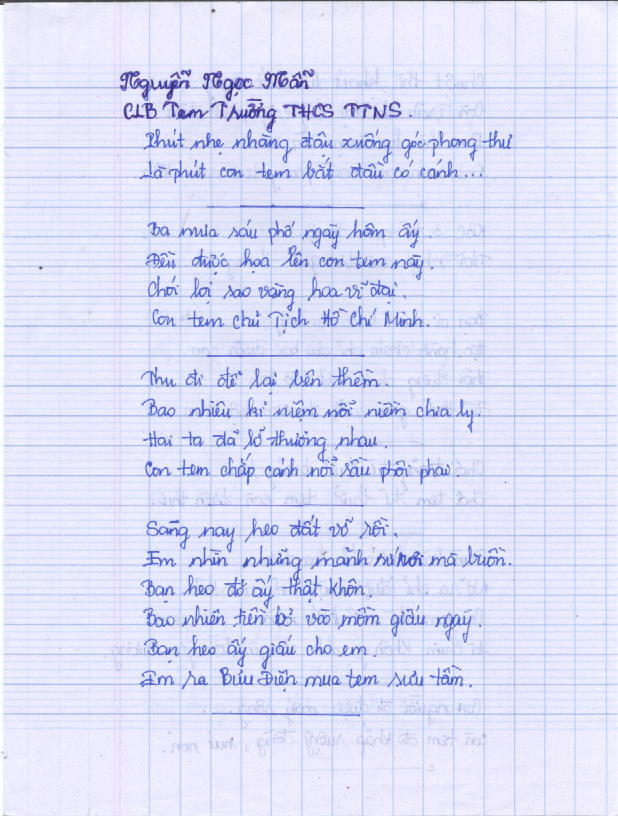 Nguyễn Ngọc Mẫn
CLB Tem Trường THCS TTNS.
Phút nhẹ nhàng đấu xuống góc phong thư
Là phút con tem bắt đầu có cánh...
Ba mưa sáu phố ngày hôm ấy.
Đều được họa lên con tem này.
Chói lọi sao vàng hoa vĩ đại.
Con tem chủ Tịch Hồ Chí Minh.
Thu đi để lại bên thềm.
Bao nhiêu kỉ niệm nỗi niềm chia ly.
Hai ta đã lỡ thương nhau.
Con tem chắp cánh nỗi sầu phôi phai
Sáng nay heo đất vỡ rồi.
Em nhìn những mảnh sứ rơi mà buồn.
Bạn heo đó ấy thật khôn.
Bao nhiên tiền bỏ vào mồm giấu ngay.
Bạn heo ấy giấu cho em.
Em ra Bưu Điện mua tem sưu tầm.